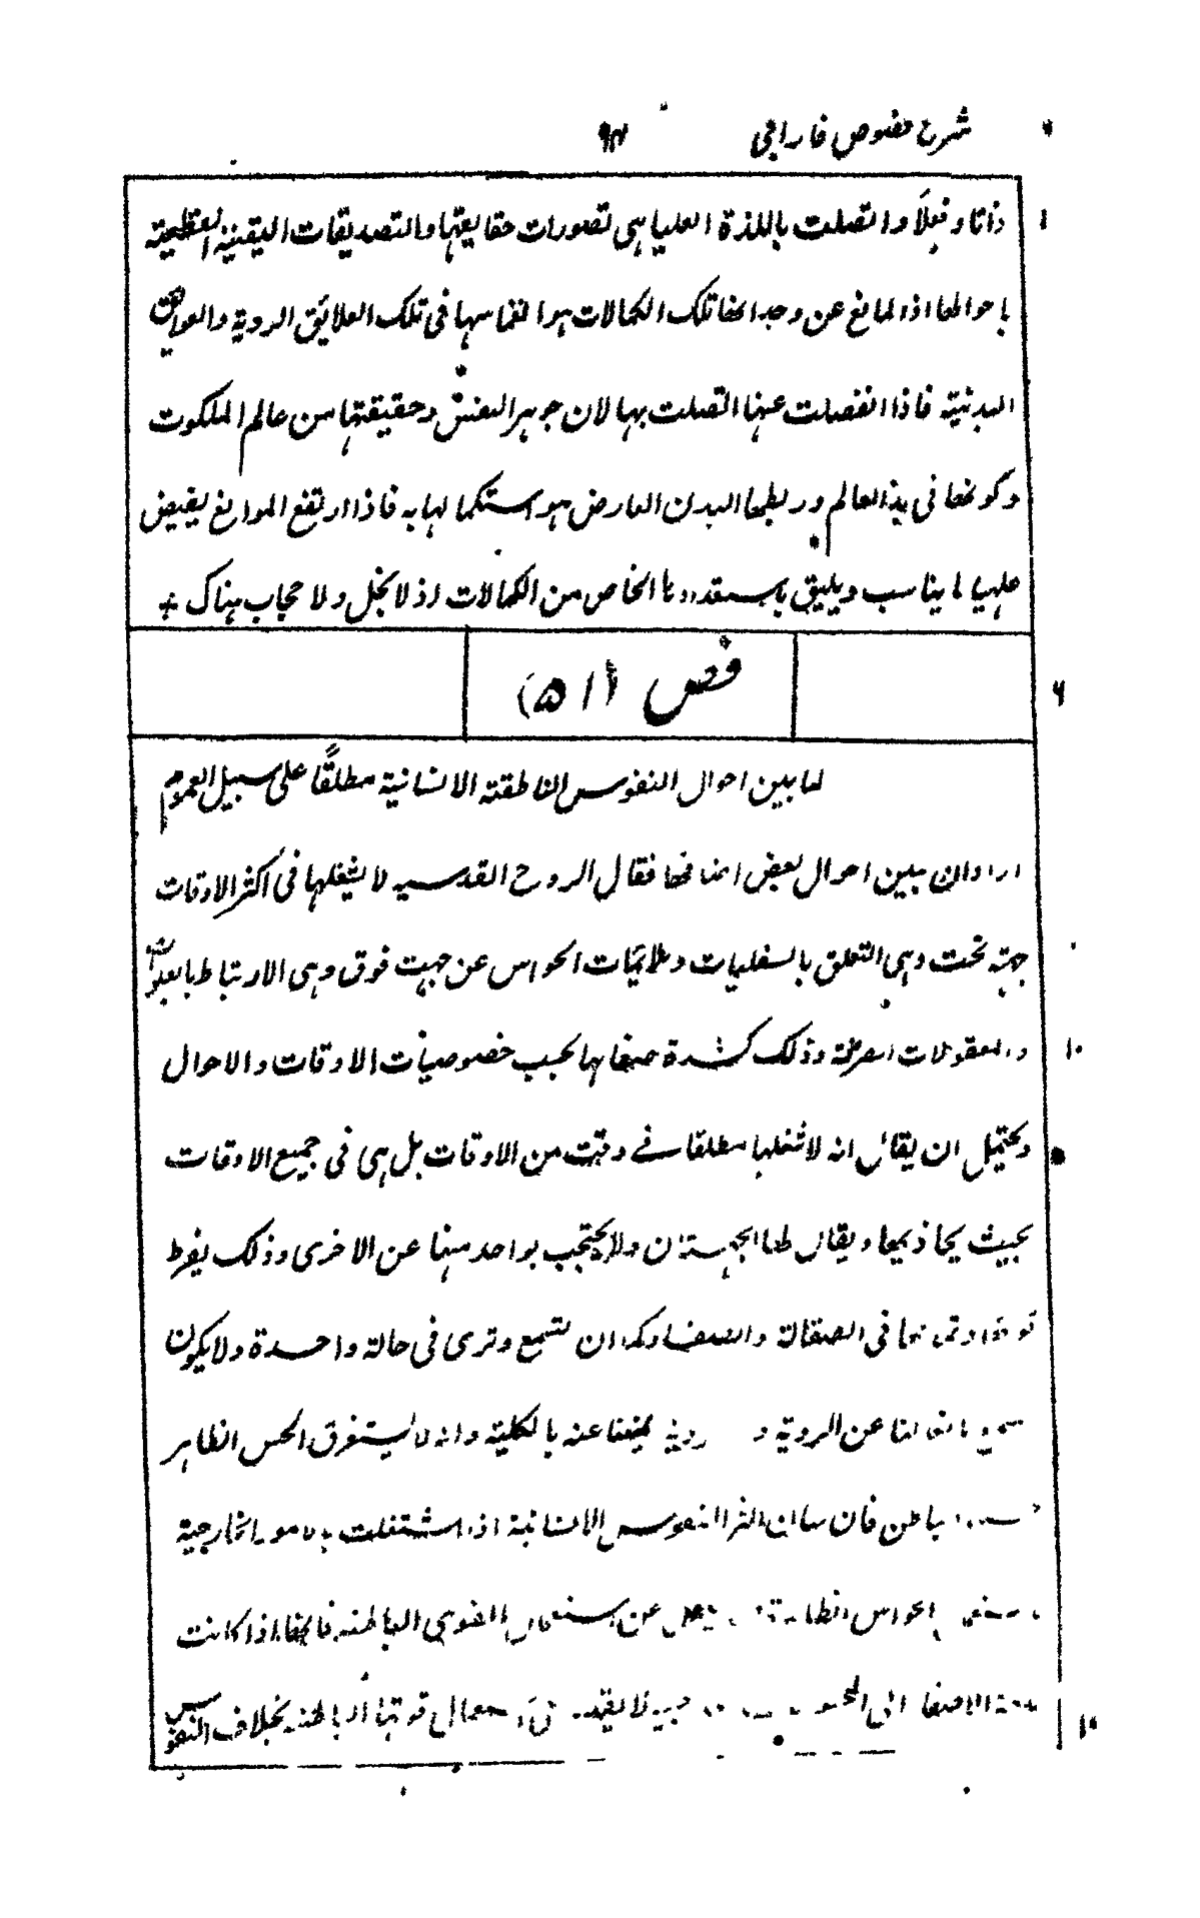 شرح فصوص فارابی ٩٣
ذاتا وفعلاً واتصلت باللذة العليا ہی تصورات حقايقہا والتصديقات اليقينية العظيمة
باحوالها اذ المانع عن وجدانها تلك الكمالات ہو انغماسہا فی تلك العلائق الردية والعوائق
البدنية فاذا انفصلت عنہا اتصلت بہا لان جوہر النفس وحقيقتہا من عالم الملكوت
وكونها فی ہذا العالم وربطها البدن العارض ہو استكمالہا به فاذا ارتفع الموانع يفيض
عليہا ما يناسب ويليق باستعدادہا الخاص من الكمالات اذ لا بخل ولا حجاب ہناك
فص (۵۱)
٦
لما بين احوال النفوس الناطقة الانسانية مطلقًا على سبيل العموم
اراد ان يبين احوال بعض اصنافها فقال الروح القدسيه لا يشغلہا فی اكثر الاوقات
جہة تحت وہی التعلق بالسفليات وملائمات الحواس عن جہت فوق وہی الارتباط بالعلويات
والمعقولات الصرفة وذلك لشدة صفائہا بحسب خصوصيات الاوقات والاحوال
١٠
ويحتمل ان يقال انه لا شغلہا مطلقا فے وقت من الاوقات بل ہی فی جميع الاوقات
بحيث يحاذيهما ويقال لها الجہتان ولا يحتجب بواحد منہا عن الاخرى وذلك بفرط
قوتها فی الصقالة والصفا وكما ان تسمع وترى فی حالة واحدة ولا يكون
عن الروية و روية يمنعنا عنه بالكلية وانه لا يستغرق الحس الظاهر
باطن فان سائر النفوس الانسانية اذا اشتغلت بالامور الخارجية
الحواس الظاہرة عن استعمال القوى الباطنه فانها اذا كانت
الاصفا الى لا يقدر استعمال قوتہا الباطنه بخلاف النفوس